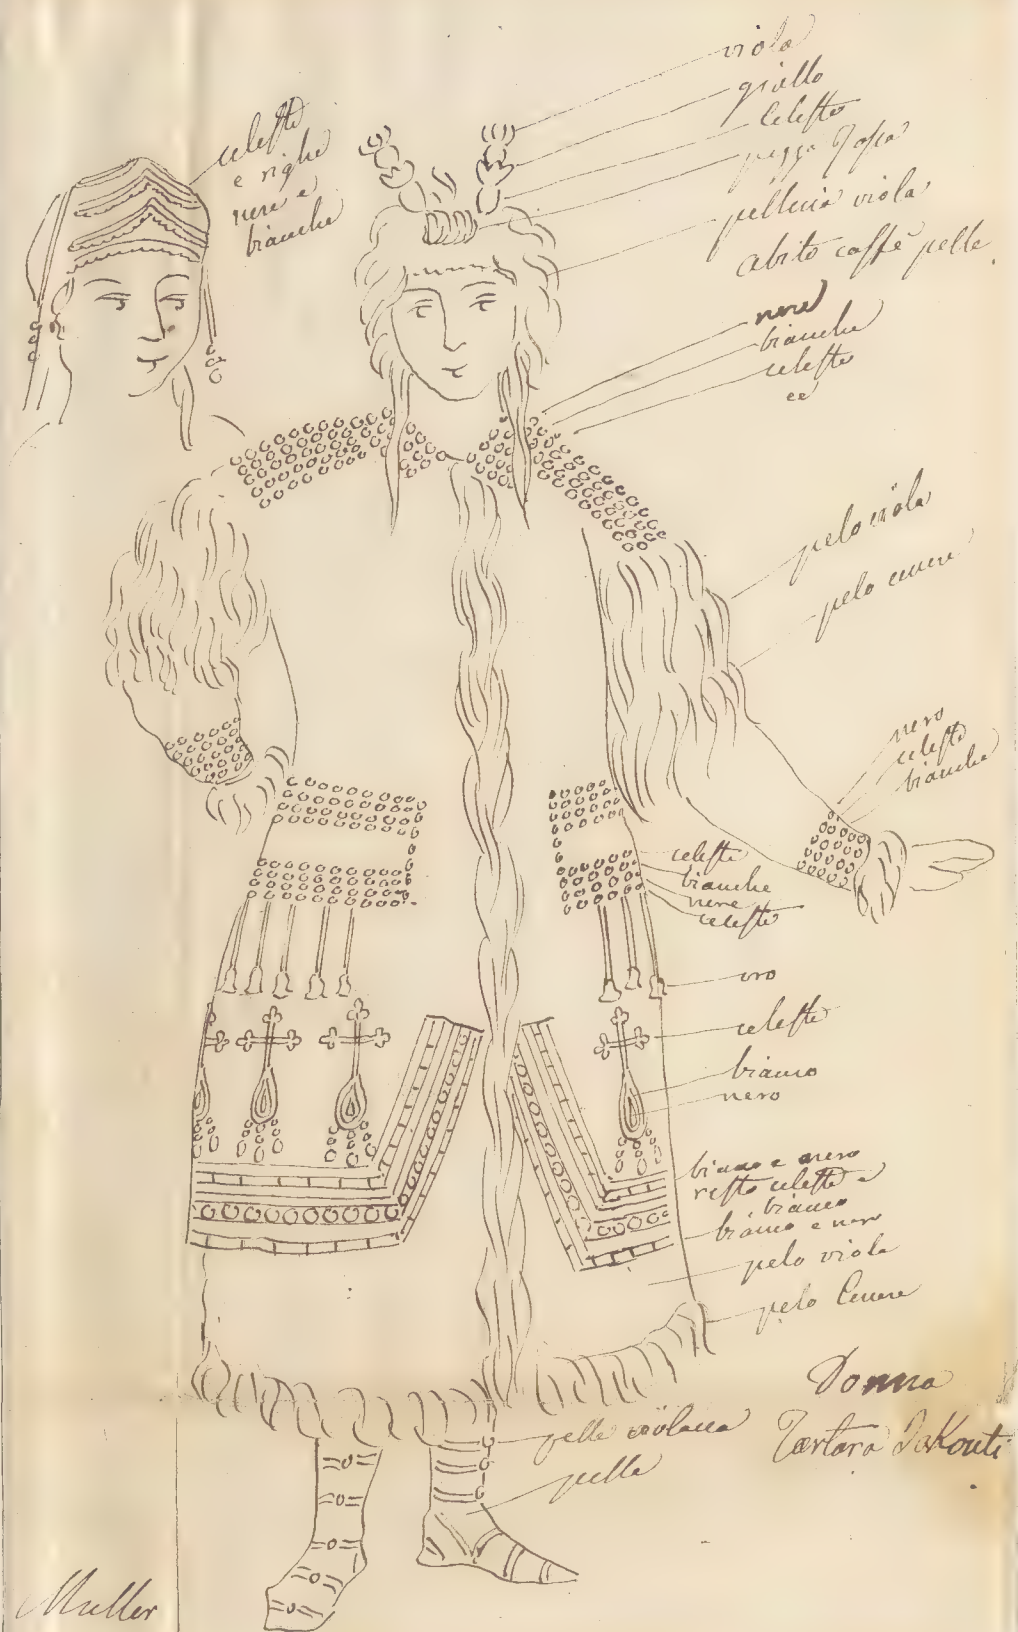 viola
giallo
Celeste
pezza Rossa
pelliccia viola
abito caffè pelle
celeste
e righe
nere e
bianche
nere
bianche
celeste
ec
pelo viola
pelo cenere
nero
celeste
bianche
celeste
bianche
nere
celeste
oro
celeste
bianco
nero
bianco e nero
resto celeste e
bianco
bianco e nero
pelo viola
pelo Cenere
Donna
Tartara Jakouti
pelle violacea
pelle
Muller